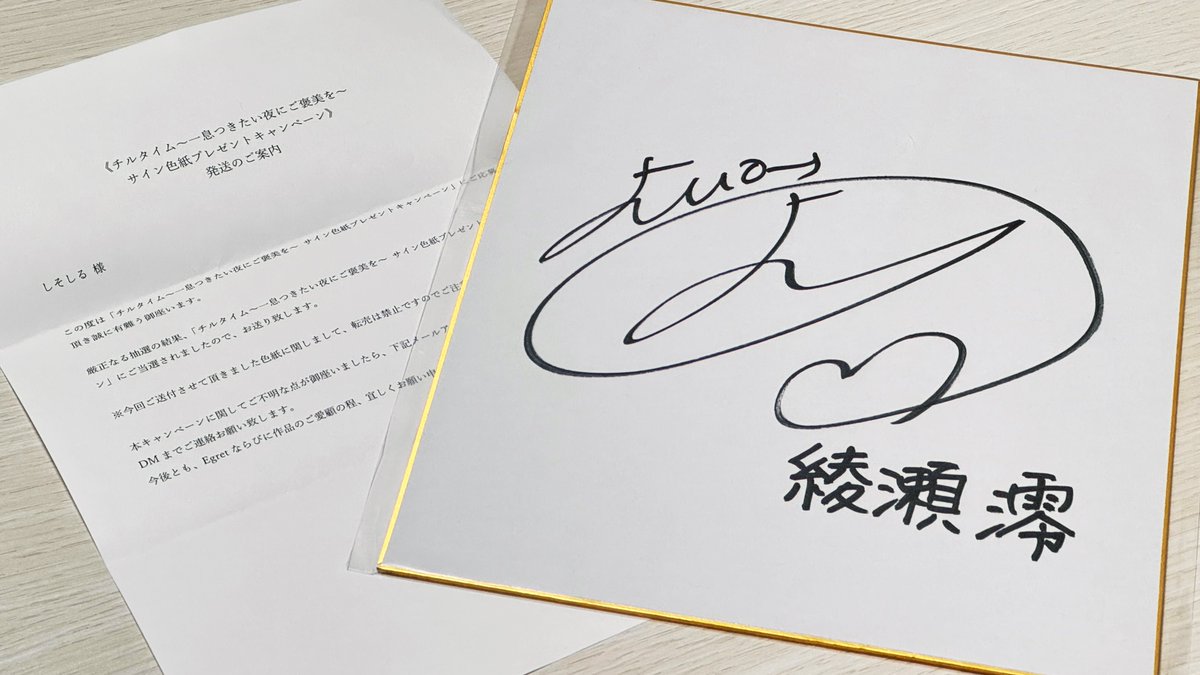 《チルタイム～一息つきたい夜にご褒美を～
サイン色紙プレゼントキャンペーン》
発送のご案内
しそしる 様
この度は「チルタイム～一息つきたい夜にご褒美を～ サイン色紙プレゼントキャンペーン」にご応募
頂き誠に有難う御座います。
厳正なる抽選の結果、「チルタイム～一息つきたい夜にご褒美を～ サイン色紙プレゼント
ン」にご当選されましたので、お送り致します。
※今回ご送付させて頂きました色紙に関しまして、転売は禁止ですのでご注
本キャンペーンに関してご不明な点が御座いましたら、下記メールア
DM までご連絡お願い致します。
今後とも、Egret ならびに作品のご愛顧の程、宜しくお願い申
綾瀬 澪